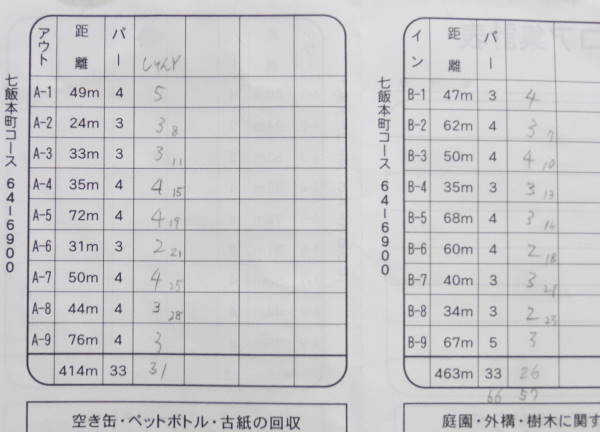 アウト 距離 パー しゅんY
A-1 49m 4 5
A-2 24m 3 3 8
A-3 33m 3 3 11
A-4 35m 4 4 15
A-5 72m 4 4 19
A-6 31m 3 2 21
A-7 50m 4 4 25
A-8 44m 4 3 28
A-9 76m 4 3
414m 33 31
七飯本町コース 64-6900
空き缶・ペットボトル・古紙の回収
イン 距離 パー
B-1 47m 3 4
B-2 62m 4 3 7
B-3 50m 4 4 10
B-4 35m 3 3 13
B-5 68m 4 3 16
B-6 60m 4 2 18
B-7 40m 3 3 21
B-8 34m 3 2 23
B-9 67m 5 3
463m 33 26
66 57
七飯本町コース 64-6900
庭園・外構・樹木に関す